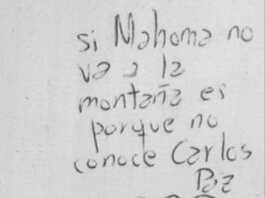 si Mahoma no
va a la
montaña es
porque no
conoce Carlos
Paz